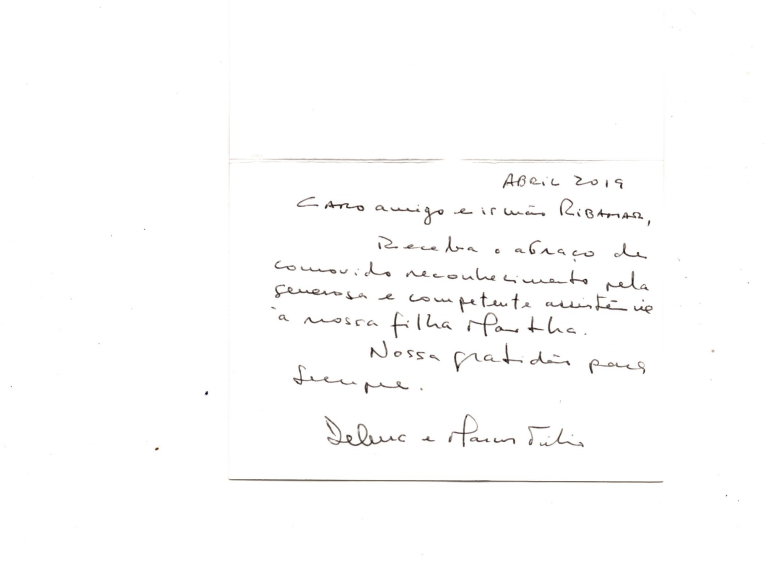 ABRIL 2019
CARO amigo e irmão RIBAMAR,
Receba o abraço de
comovido reconhecimento pela
generosa e competente assistência
à nossa filha Martha.
Nossa gratidão para
sempre.
e Marcus Túlio